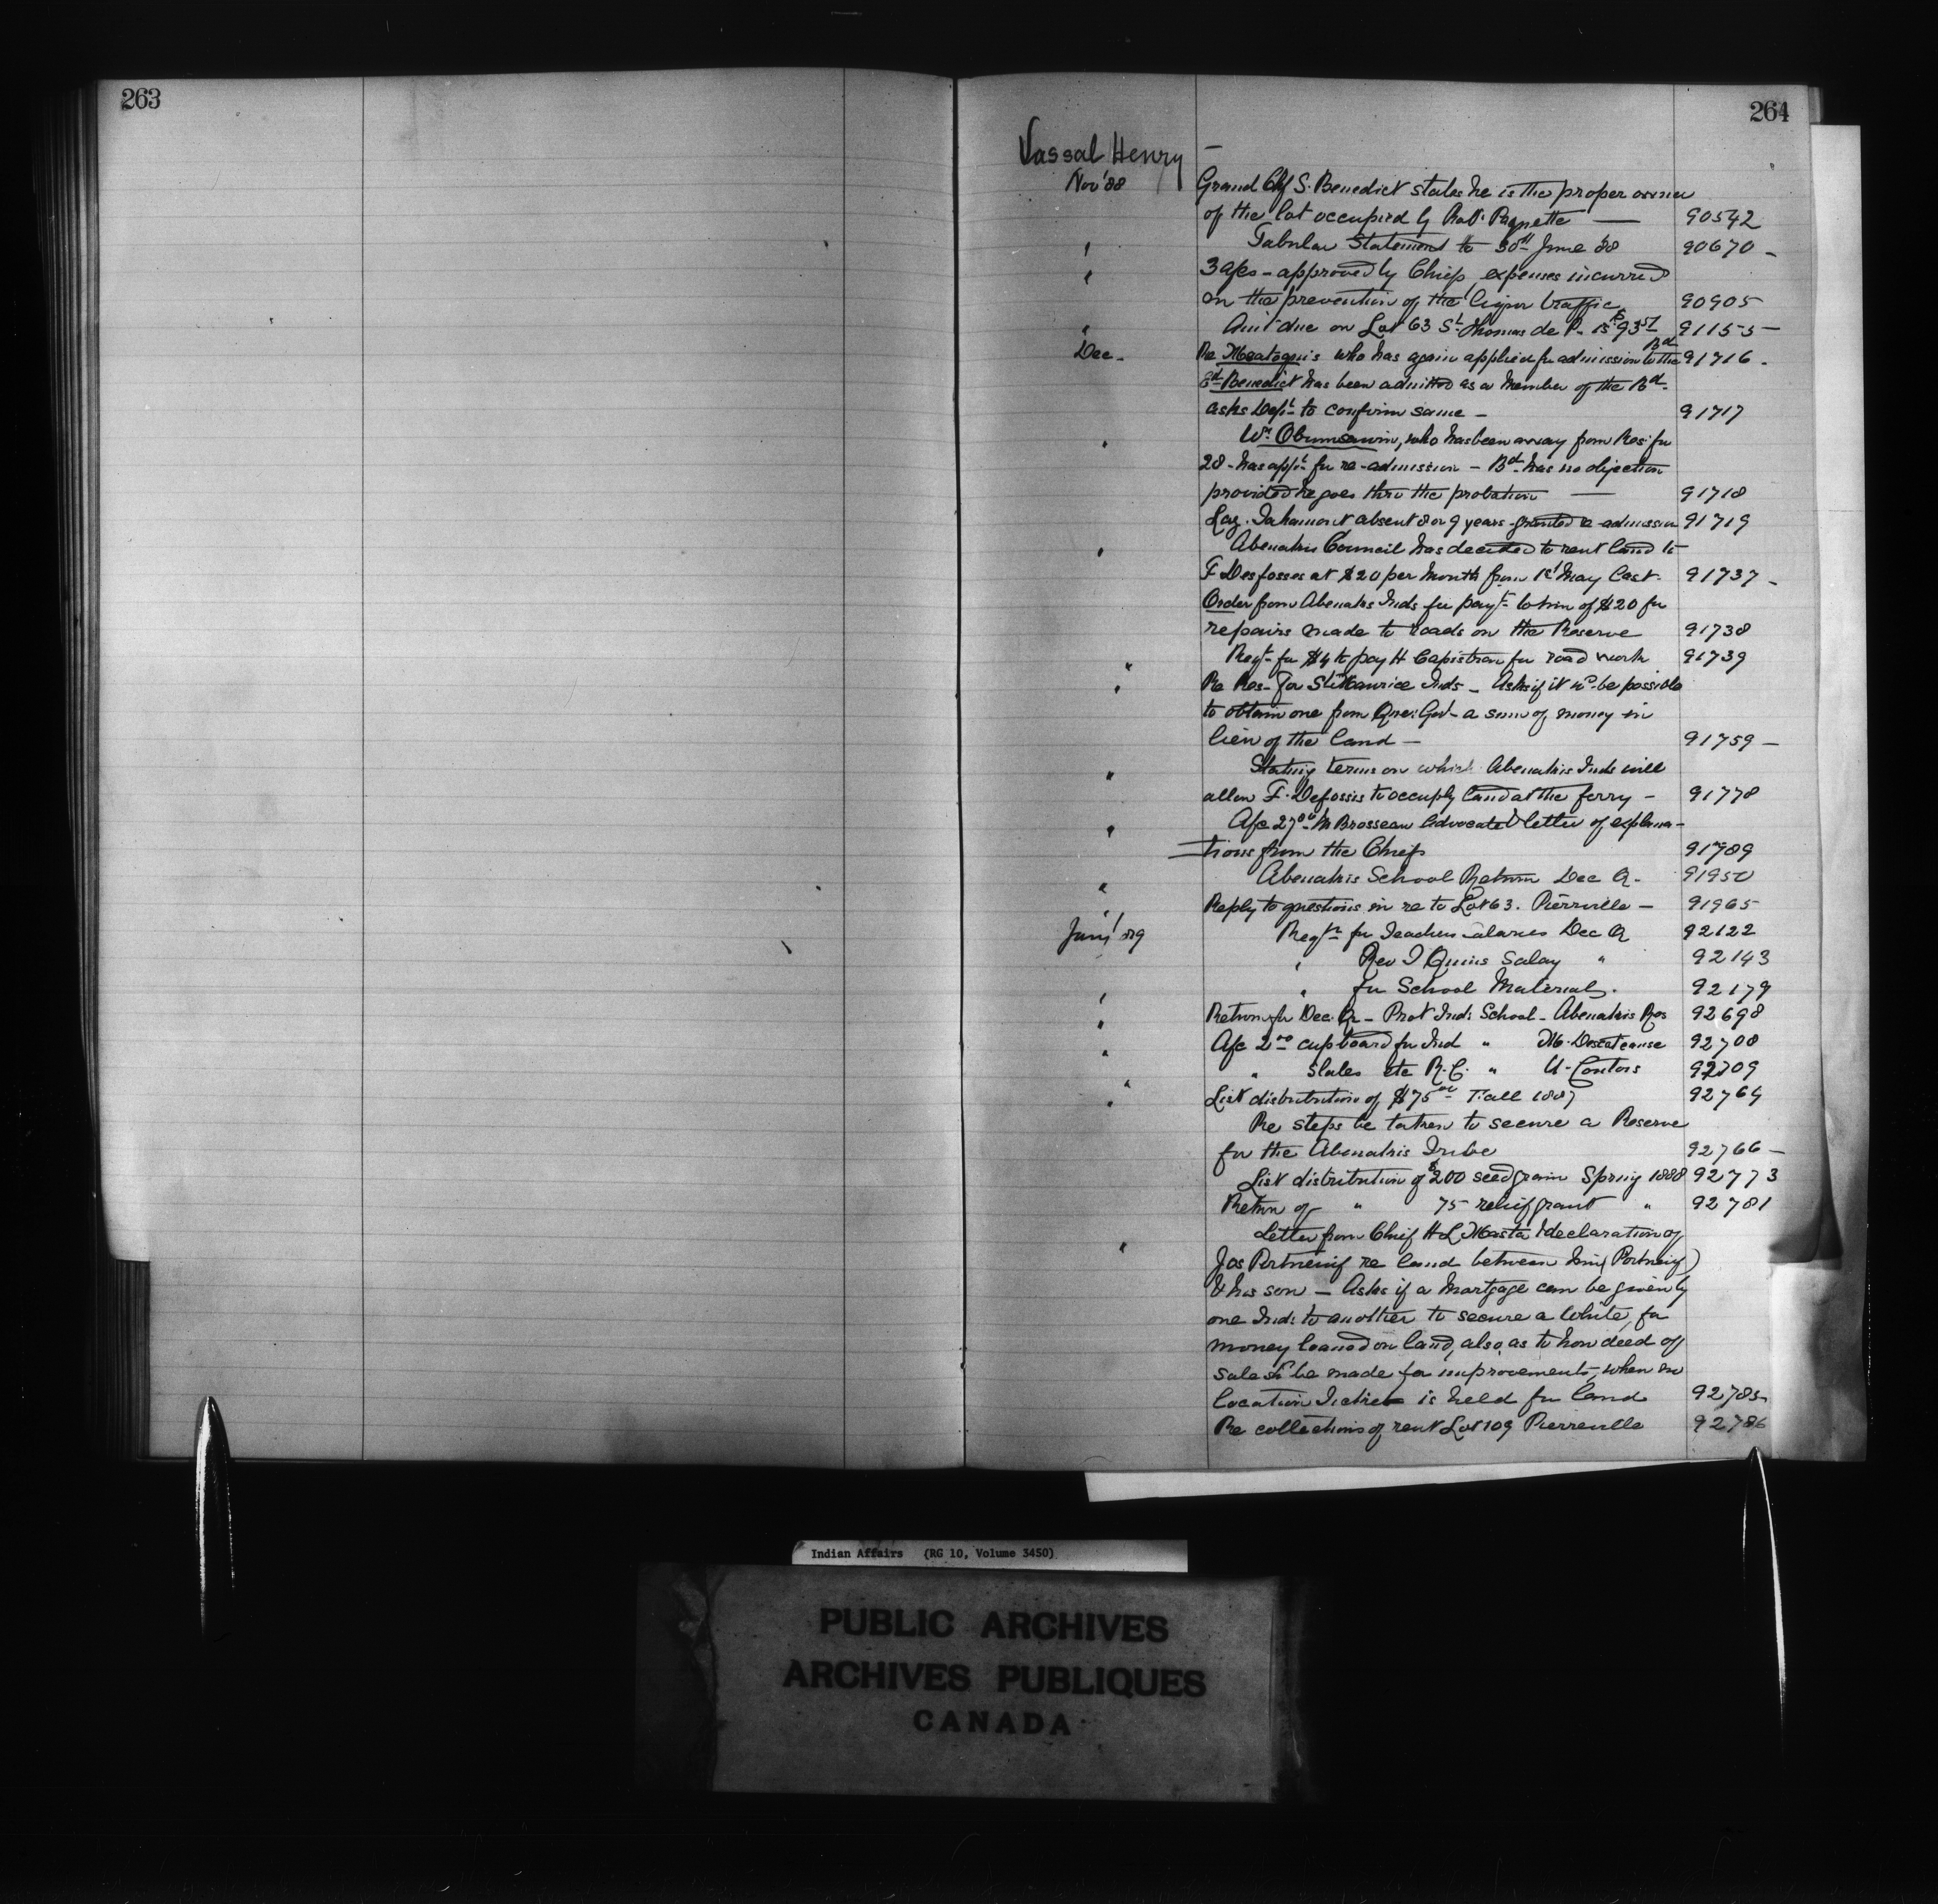 263
264
Vassal Henry —
Nov '88 Grand Chf S. Benedict states he is the proper owner
of the lot occupied by Batt. Paquette — 90542
" Tabular Statement to 30th June '88 90670 -
" 3 a/cs - approved by Chiefs expenses incurred
on the prevention of the liquor traffic 90905
" Amt due on Lot 63 St Thomas de P. is $93.51 91155 -
Dec - Re who has again applied for admission to the Bd 91716 -
Ed Benedict has been admitted as a Member of the Bd -
asks Dept to confirm same - 91717
" Wm Obumsawin, who has been away from Res. for
28 - has appd for re-admission - Bd has no objection
provided he goes thro the probation — 91718
Laz. Tahamont absent 8 or 9 years - granted re-admission 91719
" Abenakis Council has decided to rent land to
F Desfosses at $20 per Month from 1st May last. 91737 -
Order from Abenakis Inds for payt to him of $20 for
repairs made to roads on the Reserve 91738
" Reqt for $4 to pay H Capistran for road work 91739
" Re Res - for St Maurice Inds - Asks if it wd be possible
to obtain one from Que: Govt - a sum of money in
lieu of the land - 91759 -
" Stating terms on which Abenakis Inds will
allow F. Defossis to occupy land at the ferry - 91778
" A/c 27 00 M Brosseau Advocate & letter of explana-
tions from the Chiefs 91789
" Abenakis School Return Dec Q. 91950
" Reply to questions in re to Lot 63. Pierreville - 91965
Jany '89 Reqtn for Teachers Salaries Dec Q 92122
" " Rev Salary " 92143
" " for School Material. 92179
" Return for Dec. Qr - Prot Ind: School - Abenakis Res 92698
" A/c 2 00 cupboard for Ind " M. Descoteause 92708
" " Slates etc R.C. " 92709
" List distribution of $75 00 Fall 1887 92764
Re steps be taken to secure a Reserve
for the Abenakis Tribe 92766 -
List distribution of $200 seed grain Spring 1888 92773
Return of " 75 relief grant " 92781
" Letter from Chief H L Masta & declaration of
Jos Portneuif re land between him (Portneuif)
& his son - Asks if a Mortgage can be given by
one Ind: to another to secure a White, for
money loaned on land, also, as to how deed of
sale sh be made for improvements, when no
location Ticket is held for land 92785
Re collections of rent Lot 109 Pierreville 92786
Indian Affairs (RG 10, Volume 3450)
PUBLIC ARCHIVES
ARCHIVES PUBLIQUES
CANADA